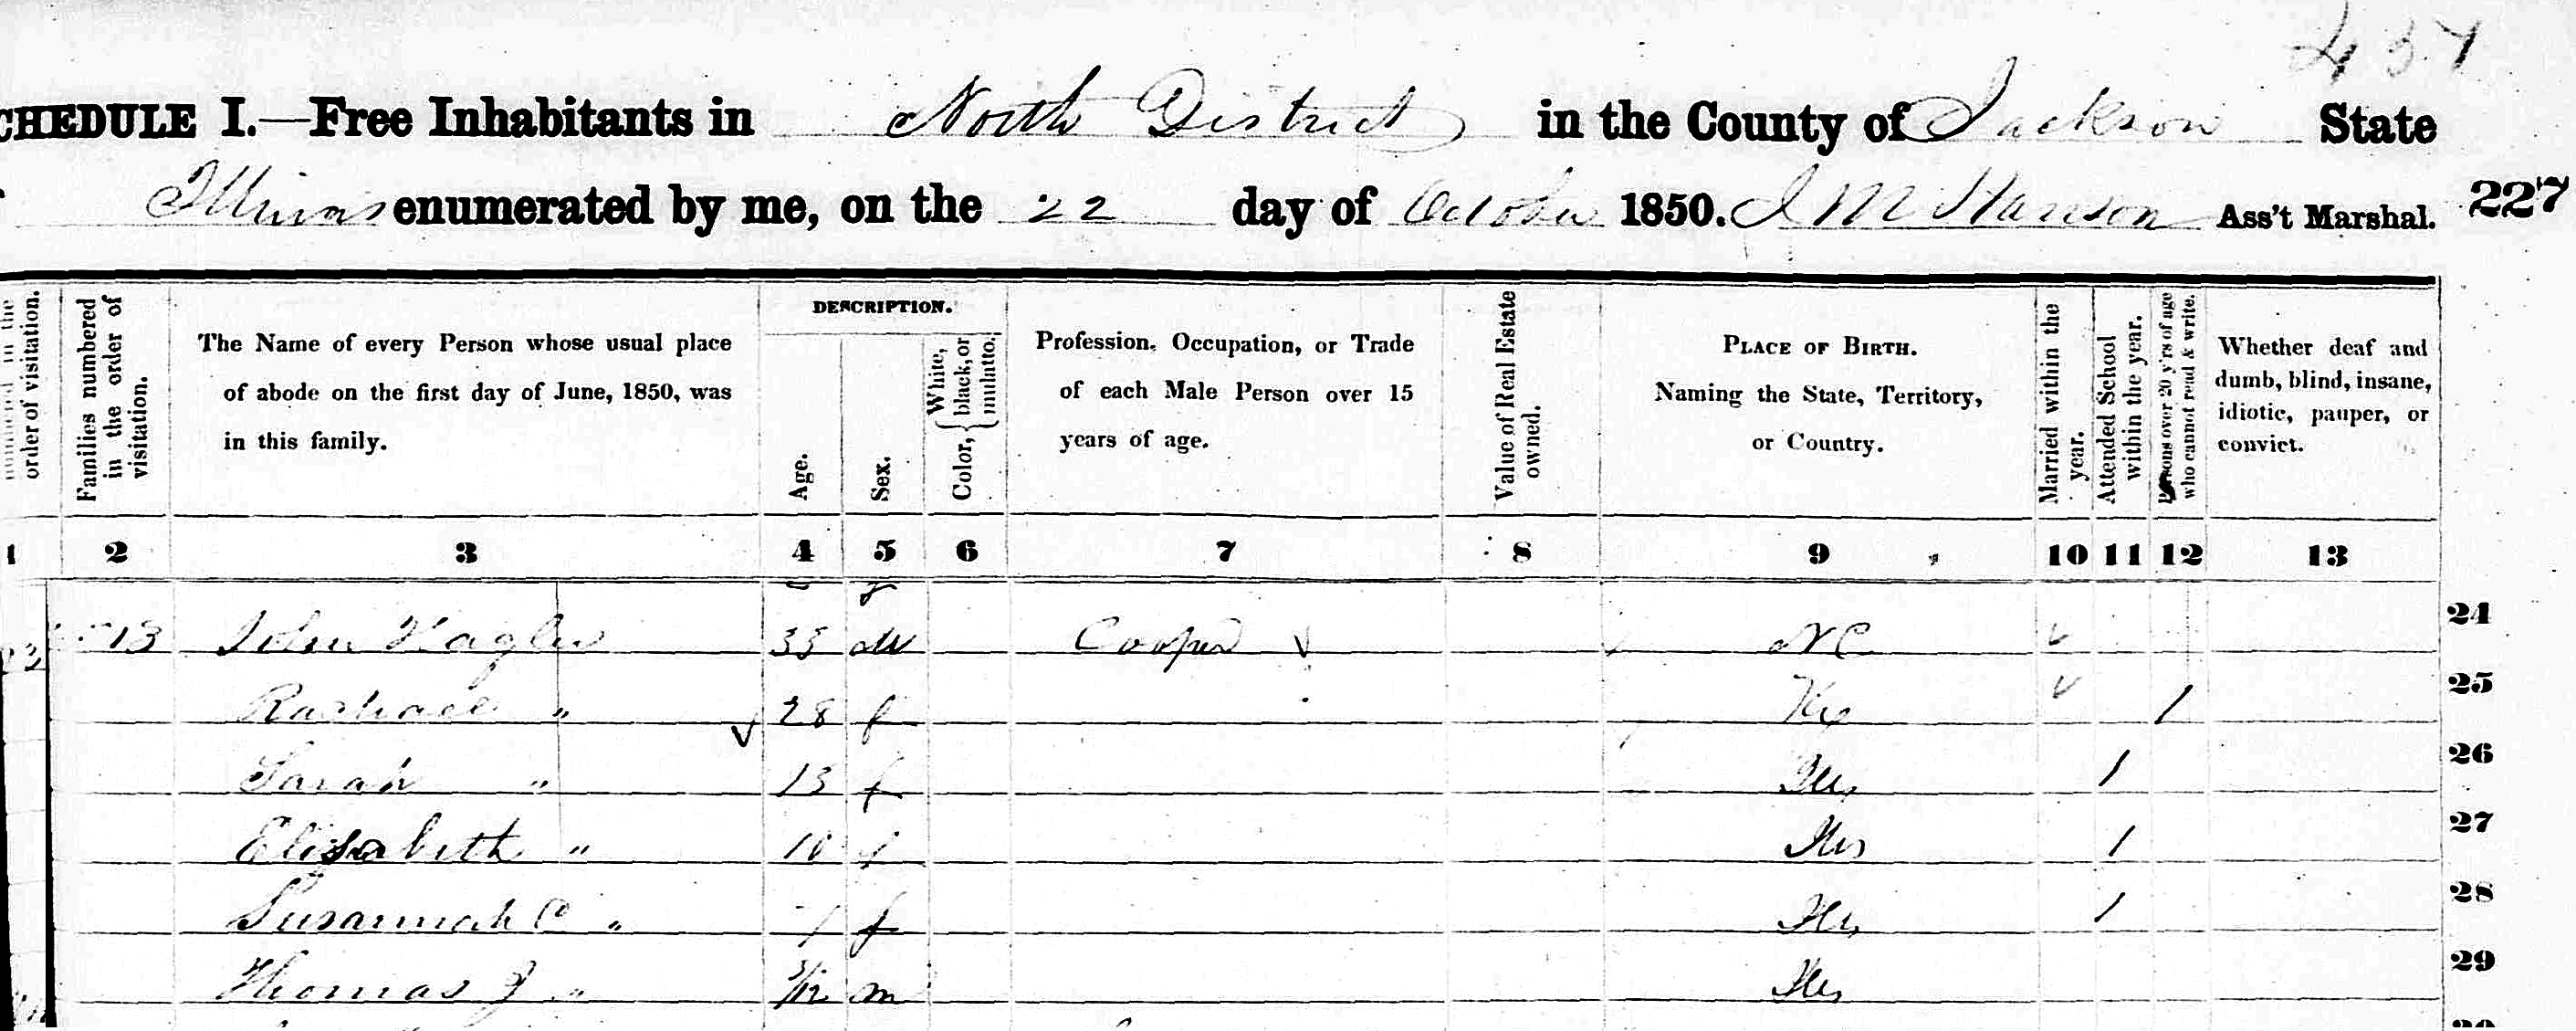 437
CHEDULE I.—Free Inhabitants in North District in the County of Jackson State
Illinois enumerated by me, on the 22 day of October 1850. J M Hanson Ass't Marshal. 227
order of visitation.
Families numbered in the order of visitation.
The Name of every Person whose usual place of abode on the first day of June, 1850, was in this family.
DESCRIPTION.
Age.
Sex.
Color, { White, black, or mulatto.
Profession, Occupation, or Trade of each Male Person over 15 years of age.
Value of Real Estate owned.
PLACE OF BIRTH. Naming the State, Territory, or Country.
Married within the year.
Attended School within the year.
Persons over 20 y'rs of age who cannot read & write.
Whether deaf and dumb, blind, insane, idiotic, pauper, or convict.
1 2 3 4 5 6 7 8 9 10 11 12 13
13 John Hagler 35 m Cooper NC 24
Rachael " 28 f Ky 1 25
Sarah " 13 f Ills 1 26
Elizabeth " 10 f Ills 1 27
Susannah C " 7 f Ills 1 28
Thomas J " 3/12 m Ills 29